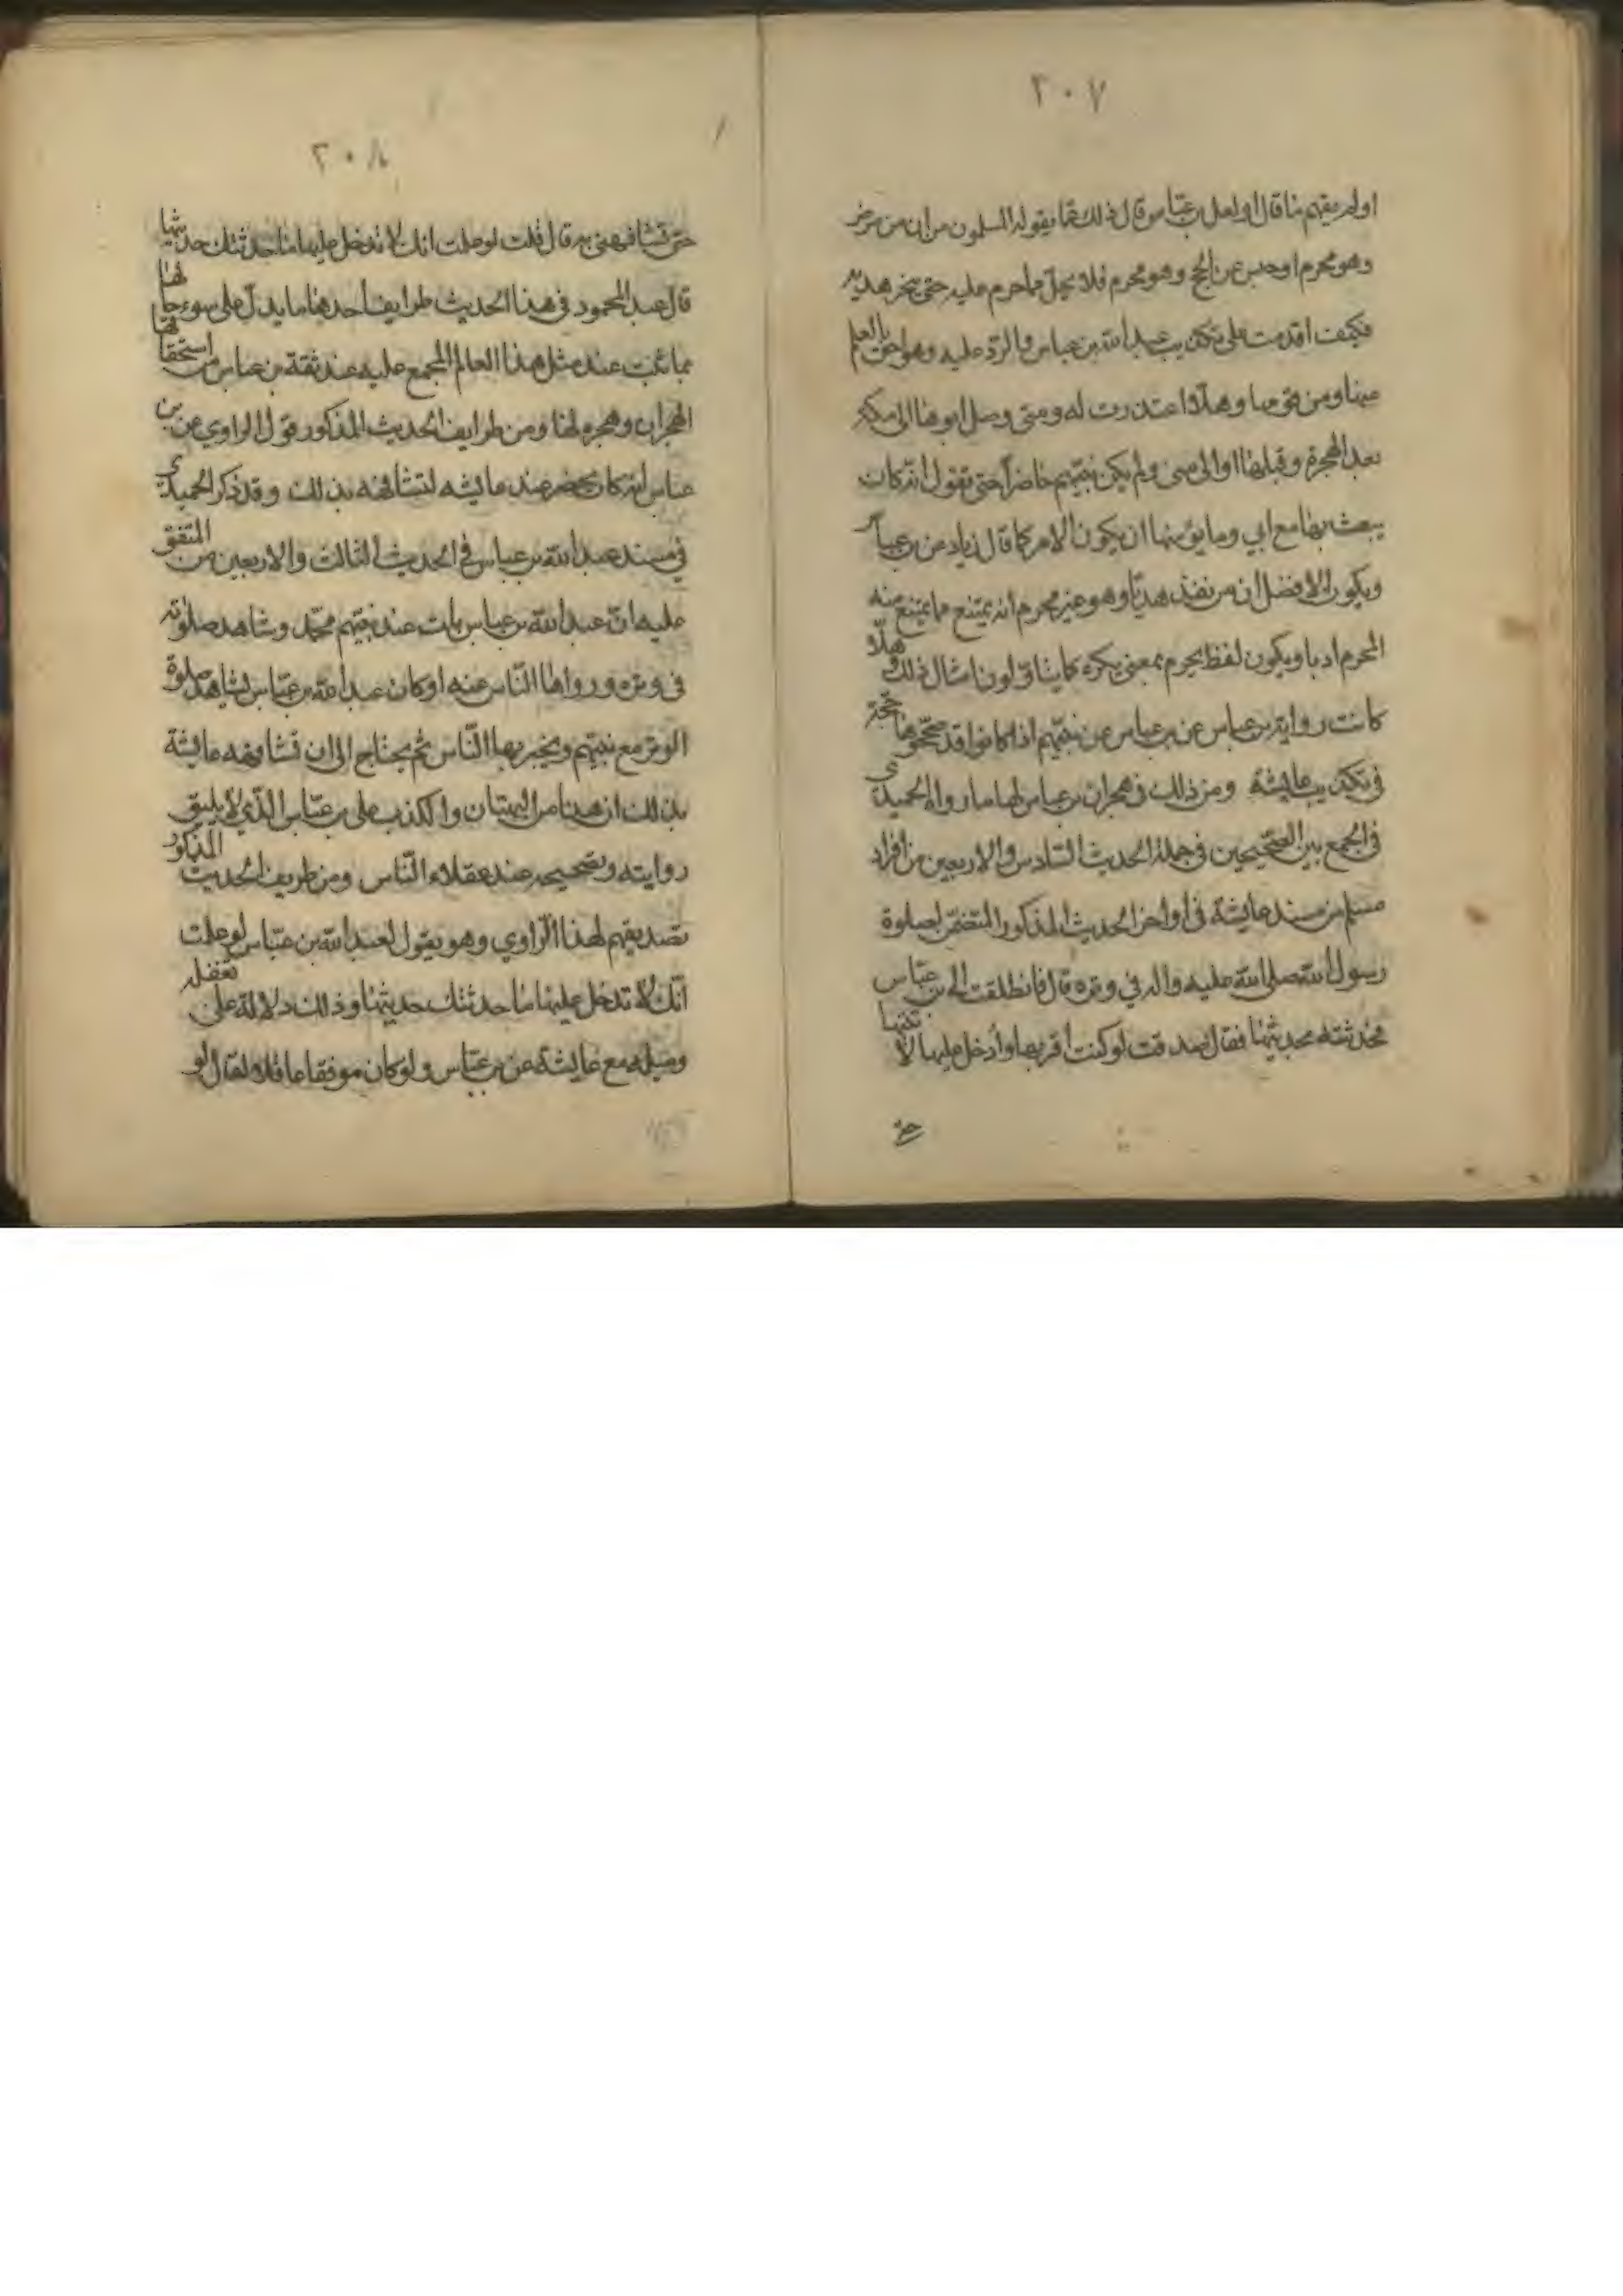 ٢٠٧
او لم يفهم ما قال او لعل بن عباس قال ذلك عما يقوله المسلمون من ان من مرض
وهو محرم او حبس عن الحج وهو محرم فلا يحل مما حرم عليه حتى ينحر هديه
فكيف اقدمت على تكذيب عبد الله بن عباس والرد عليه وهو اعرف بالعلم
منها ومن قومها وهلا اعتذرت له ومتى وصل ابوها الى مكة
بعد الهجرة وقبلها او الى منى ولم يكن نبيهم حاضراً حتى تقول انه كان
يبعث بها مع ابي وما يؤمنها ان يكون الامر كما قال زياد عن بن عباس
ويكون الافضل ان من نفذ هدياً وهو غير محرم انه يمتنع مما يمتنع منه
المحرم ادبا ويكون لفظ يحرم بمعنى يكره كما يتاولون امثال ذلك وهلا
كانت رواية بن عباس عن نبيهم اذا كانوا قد صححوها حجة
في تكذيب عايشة ومن ذلك في هجران بن عباس لها ما رواه الحميدي
في الجمع بين الصحيحين في جملة الحديث السادس والاربعين من افراد
مسلم من مسند عايشة في اواخر الحديث المذكور المتضمن لصلوة
رسول الله صلى الله عليه واله في وتره قال فانطلقت الى بن عباس
فحدثته بحديثها فقال صدقت لو كنت اقربها او ادخل عليها لاتيتها
حتى
٢٠٨
حتى تشافهني به قال قلت لو علمت انك لا تدخل عليها ما حدثتك حديثها
قال عبد المحمود في هذا الحديث طرايف احدها ما يدل على سوء حالها
بما ثبت عند مثل هذا العالم المجمع عليه عند ثقة بن عباس من استحقاقها
الهجران وهجره لها ومن طرايف الحديث المذكور قول الراوي عن بن
عباس انه كان يحضر عند عايشه لتشافهه بذلك وقد ذكر الحميدي
في مسند عبد الله بن عباس في الحديث الثالث والاربعين من المتفق
عليه ان عبد الله بن عباس بات عند نبيهم محمد وشاهد صلوته
في وتره ورواها الناس عنه اوكان عبد الله بن عباس يشاهد صلوة
الوتر مع نبيهم ويخبر بها الناس ثم يحتاج الى ان تشافهه عايشة
بذلك ان هذا من البهتان والكذب على بن عباس الذي لا يليق
روايته وتصحيحه عند عقلاء الناس ومن طريف الحديث المذكور
تصديقهم لهذا الراوي وهو يقول لعبد الله بن عباس لو علمت
انك لا تدخل عليها ما حدثتك حديثها وذلك دلالة على تغفله
وميله مع عايشة عن بن عباس ولو كان موفقا عاقلا لقال لو